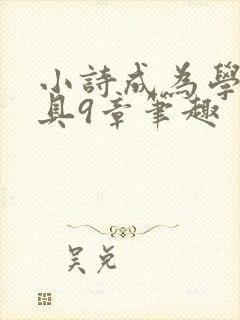 小詩成為學
具9章筆趣
吴兑